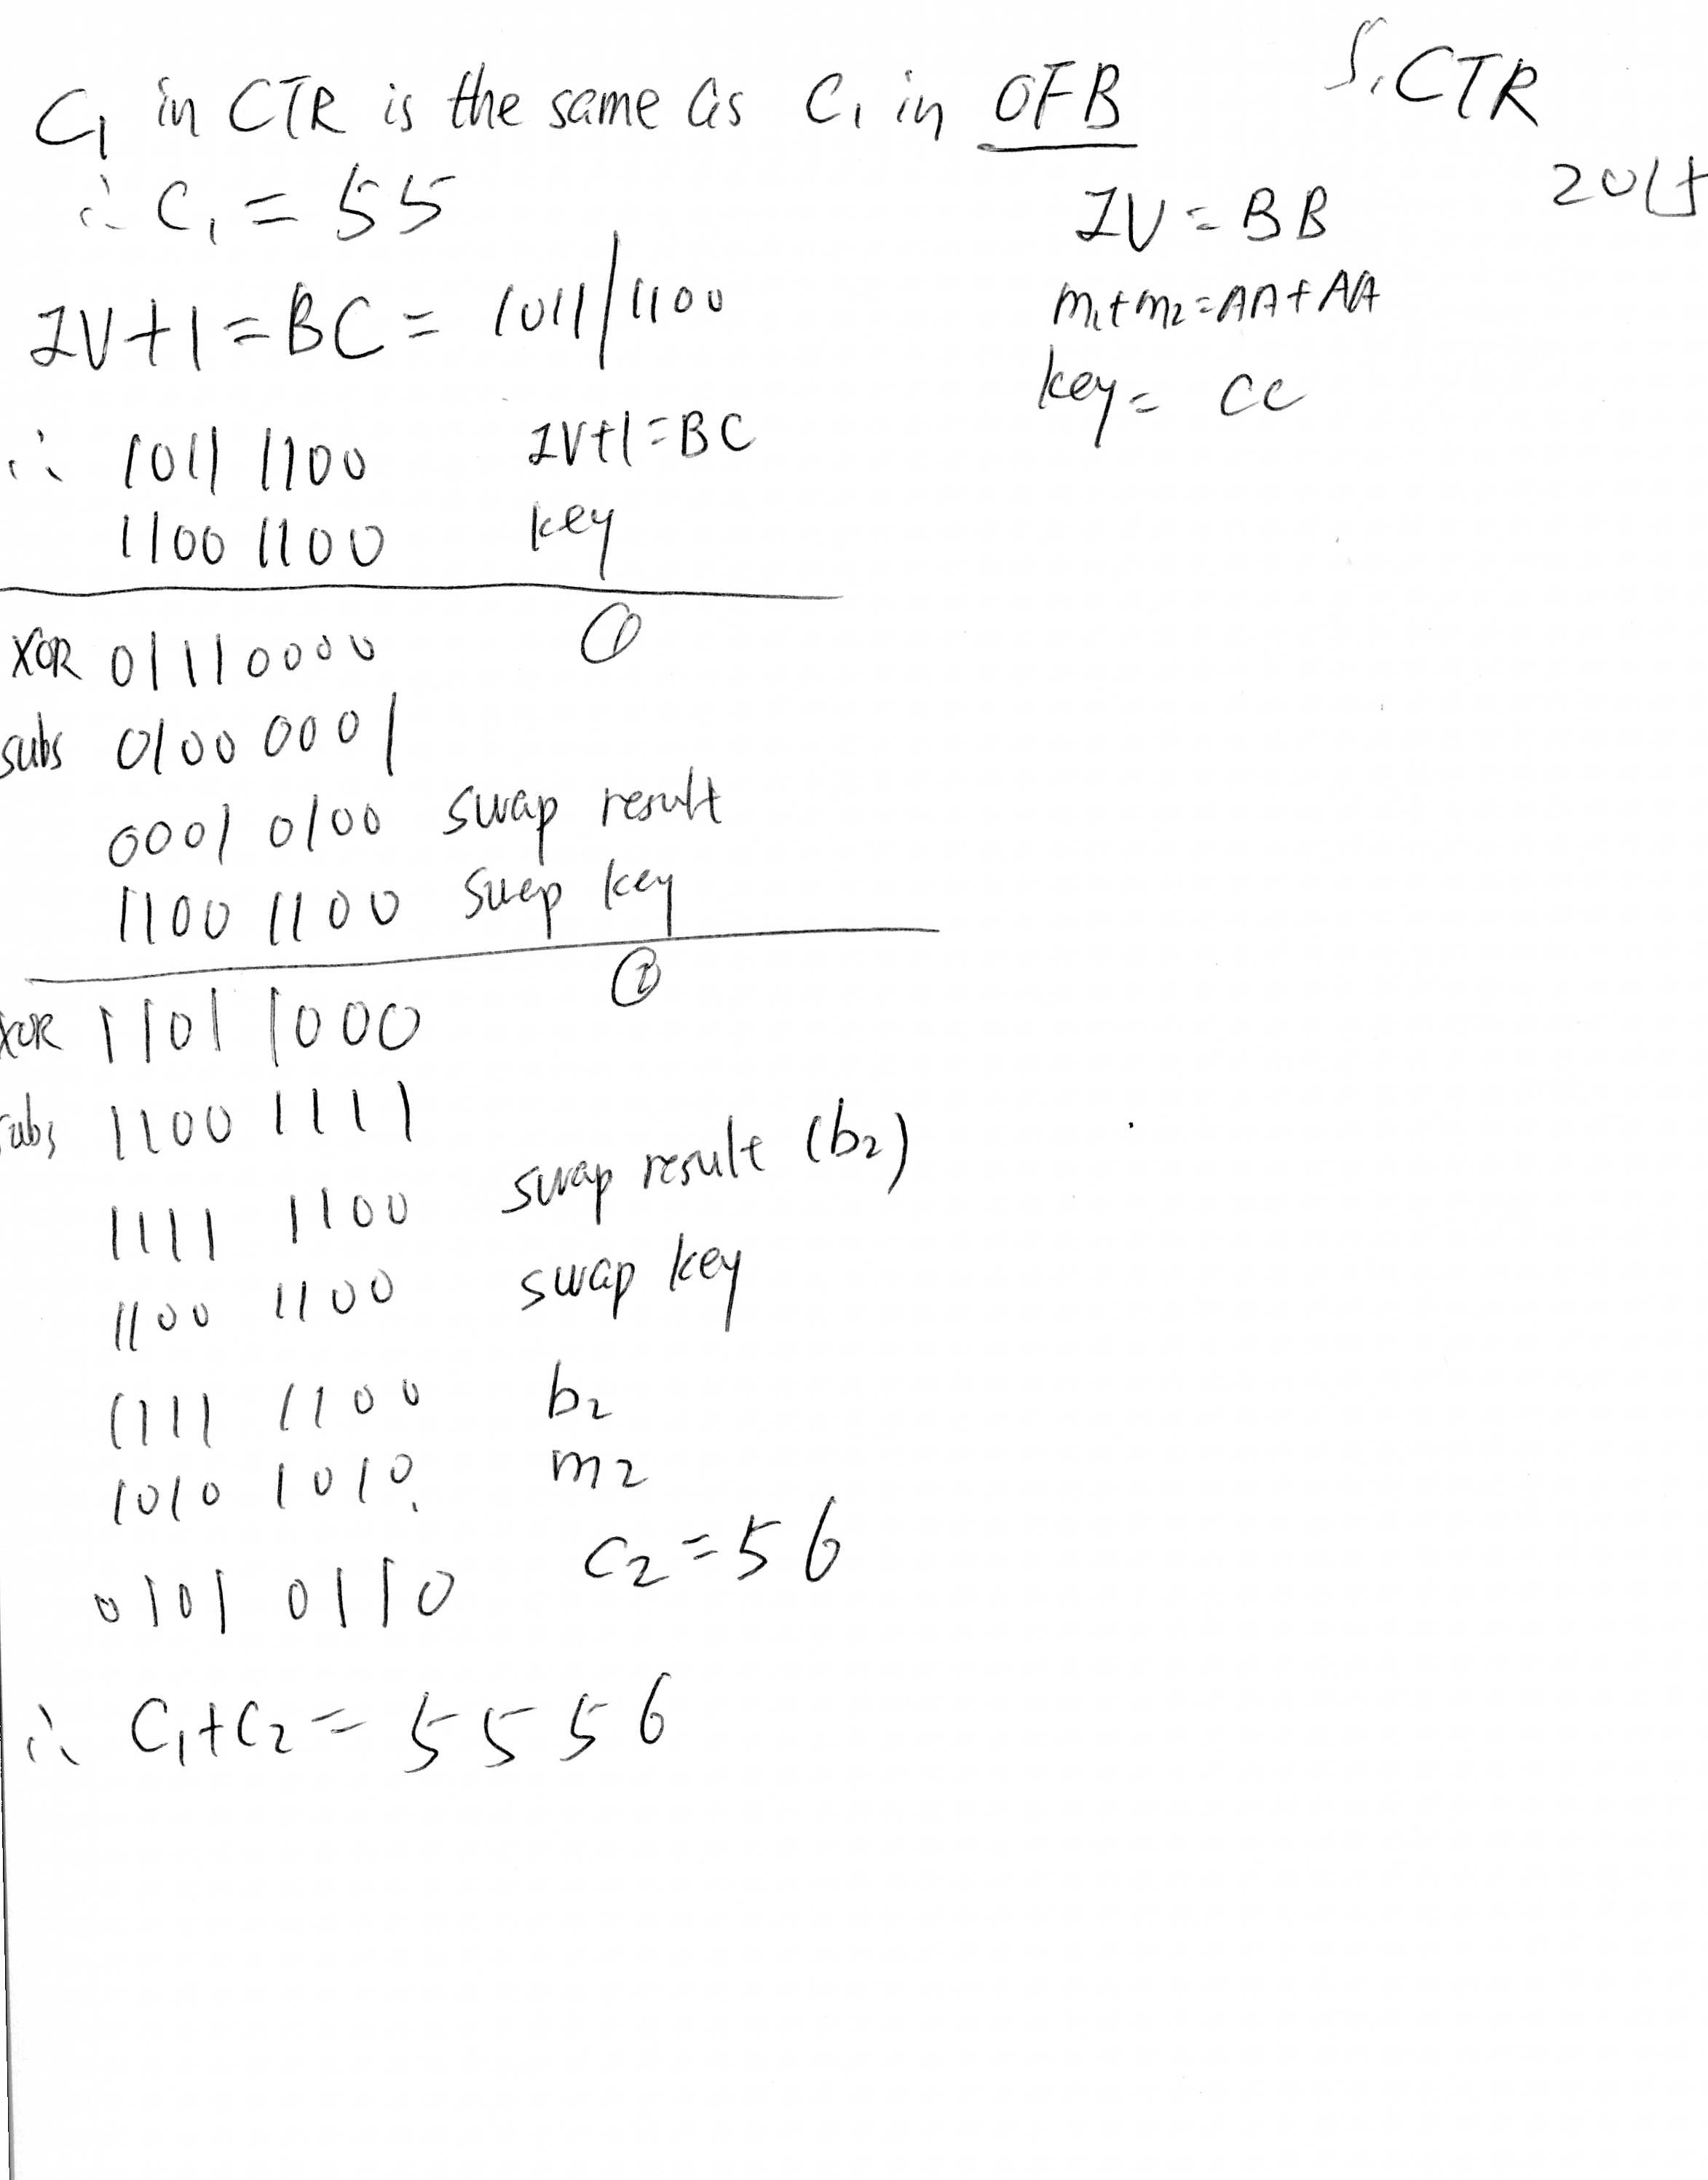 C1 in CTR is the same as C1 in OFB
5. CTR
2015
∴ C1 = 55
IV = BB
m1+m2=AA+AA
key= CC
IV+1=BC= 1011/1100
∴ 1011 1100 IV+1=BC
1100 1100 key
①
XOR 0111 0000
subs 0100 0001
0001 0100 swap result
1100 1100 swap key
②
XOR 1101 1000
subs 1100 1111
1111 1100 swap result (b2)
1100 1100 swap key
1111 1100 b2
1010 1010 m2
0101 0110 C2=56
∴ C1+C2= 5556